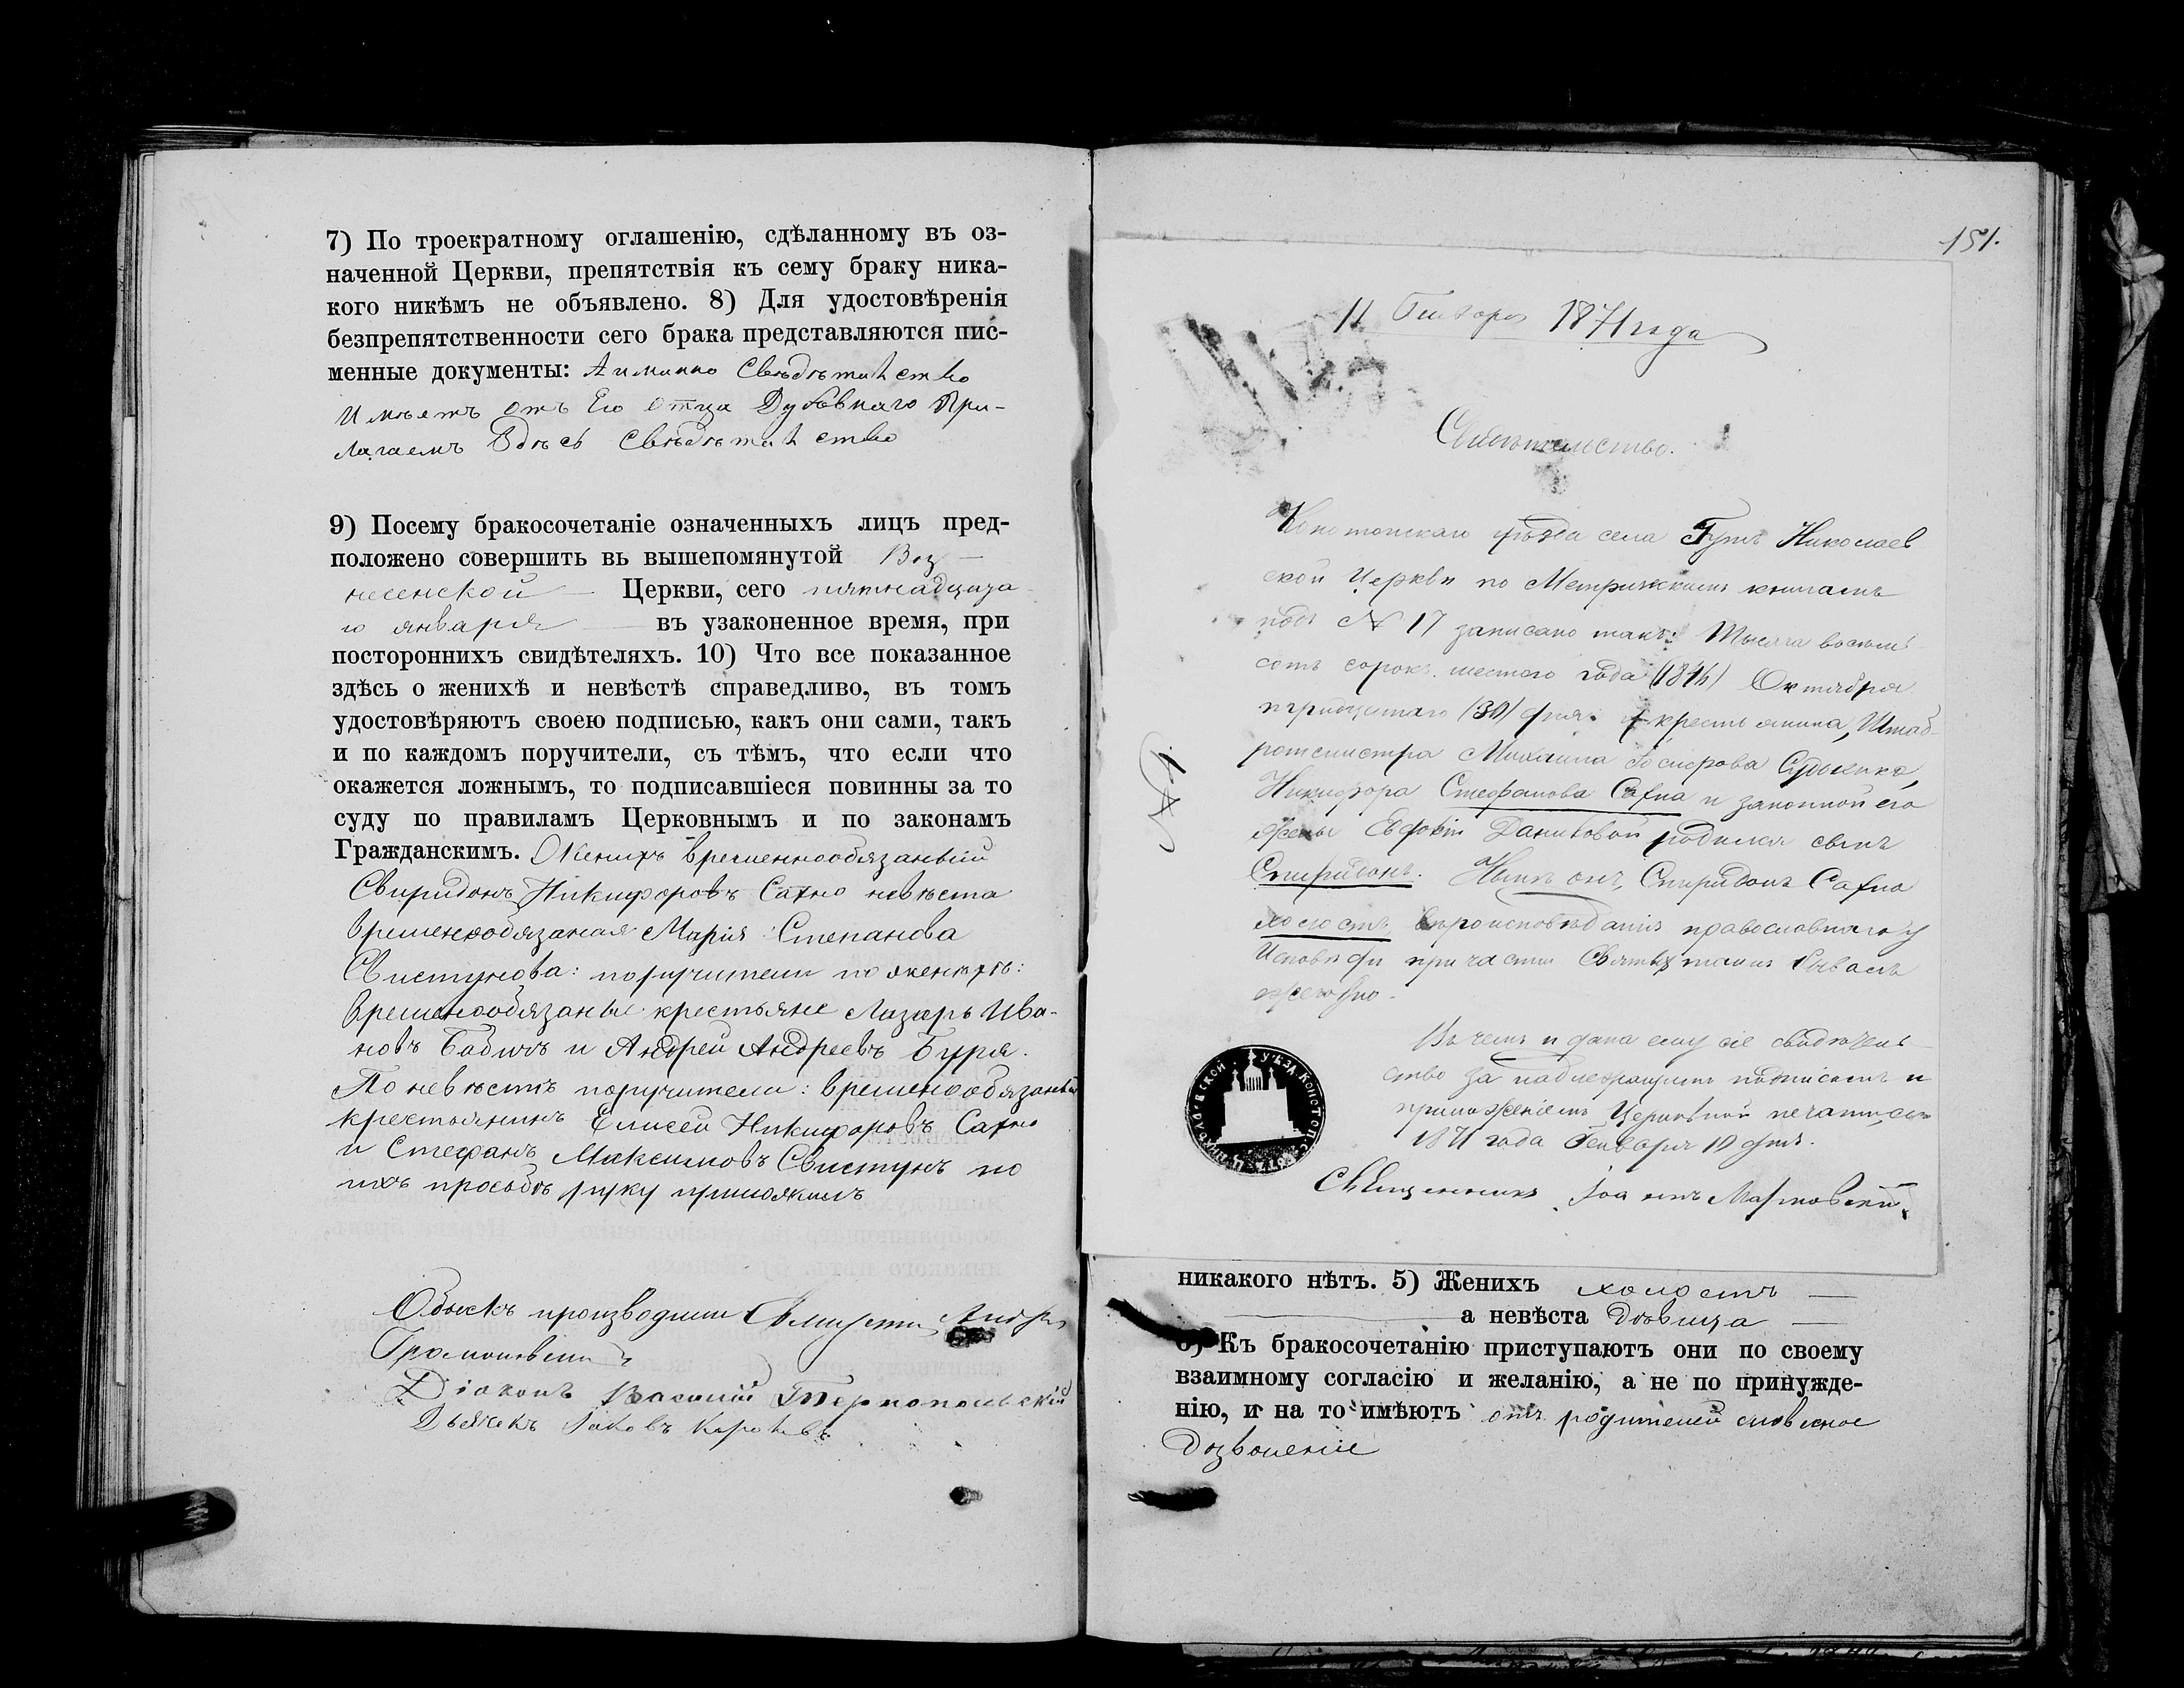 7) По троекратному оглашенію, сдѣланному въ оз-
наченной Церкви, препятствія къ сему браку ника-
кого никѣмъ не объявлено. 8) Для удостовѣренія
безпрепятственности сего брака представляются пис-
менные документы: Аименно Свѣдѣтельство
Имѣетъ отъ Его отца Духовнаго При-
лагаемъ Здѣсь Свѣдѣтельство
9) Посему бракосочетаніе означенныхъ лицъ пред-
положено совершить вь вышепомянутой Воз-
несенской Церкви, сего пятнадцата-
го января въ узаконенное время, при
постороннихъ свидѣтеляхъ. 10) Что все показанное
здѣсь о женихѣ и невѣстѣ справедливо, въ томъ
удостовѣряютъ своею подписью, какъ они сами, такъ
и по каждомъ поручители, съ тѣмъ, что если что
окажется ложнымъ, то подписавшіеся повинны за то
суду по правиламъ Церковнымъ и по законамъ
Гражданскимъ. Женихъ временнообязаный
Свиридонъ Никифоровъ Сахно невѣста
временнообязаная Марія Степанова
Свистунова: поручители по женихѣ:
временнообязаные крестьяне Лазарь Ива-
новъ Бабичъ и Андрей Андреевъ Буря.
По невѣстѣ поручители: временообязаный
крестьянинъ Елисей Никифоровъ Сахно
и Стефанъ Максимовъ Свистунъ по
ихъ прозьбѣ руку приложилъ
Обыскъ производили
Діаконъ Василій Тернопольскій
Дьячекъ Іаковъ
151.
11 Генваря 1871 года
Свидѣтельство.
Конотопскаго уѣзда села Гутъ Николаев
ской Церкви по Метрическимъ книгамъ
подъ № 17 записано такъ: Тысяча восемь
сотъ сорокъ шестого года (1846) Октября
тридцатаго (30) дня крестьянина, Штаб-
ротмистра Михаила Судыенко,
Никифора Стефанова Сахна и законной его
жены Евдокіи Даниловой родился сынъ
Спиридонъ. Нынѣ онъ, Спиридонъ Сахно
холостъ, вѣроисповѣданія православнаго у
Исповѣди и причастія Святыхъ таинъ бывалъ
ежегодно.
Въ чемъ и дана ему сіе свидѣтель
ство за надлежащимъ подписомъ и
приложеніемъ Церковной печати,
1871 года Генваря 10 дня.
Священникъ Іоаннъ Марковскій.
никакого нѣтъ. 5) Женихъ холостъ
а невѣста дѣвица
6) Къ бракосочетанію приступаютъ они по своему
взаимному согласію и желанію, а не по принужде-
нію, и на то имѣютъ отъ родителей словесное
дозволеніе